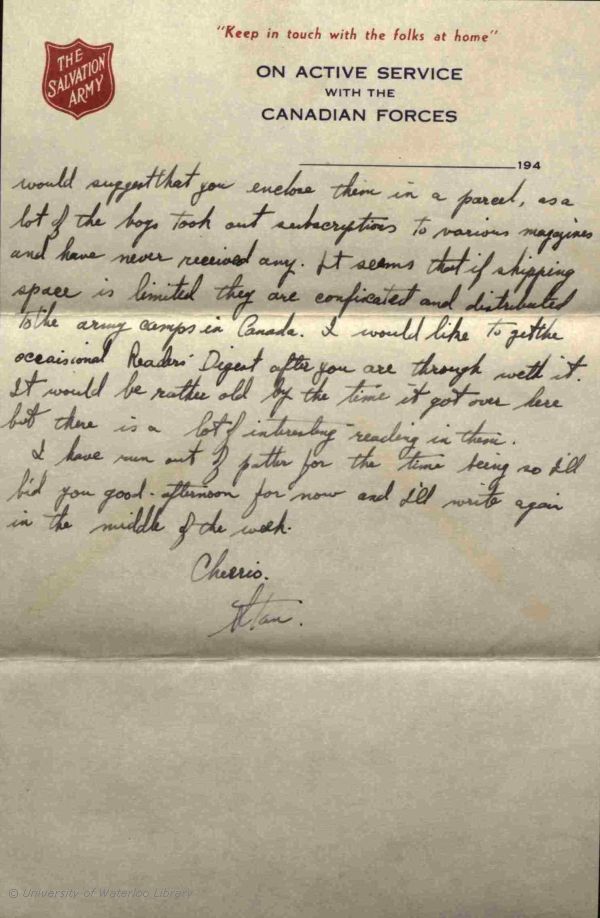 "Keep in touch with the folks at home"
THE
SALVATION
ARMY
ON ACTIVE SERVICE
WITH THE
CANADIAN FORCES
194
would suggest that you enclose them in a parcel, as a
lot of the boys took out subscriptions to various magazines
and have never received any. It seems that if shipping
space is limited they are conficated and distributed
to the army camps in Canada. I would like to get the
occaisional Readers' Digest after you are through with it.
It would be rather old by the time it got over here
but there is a lot of interesting reading in them.
I have run out of patter for the time being so I'll
bid you good-afternoon for now and I'll write again
in the middle of the week.
Cheerio.
Stan.
© University of Waterloo Library